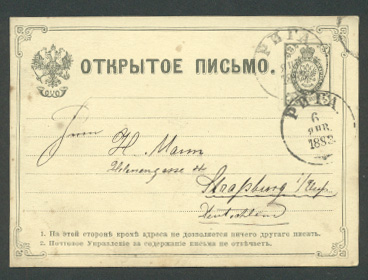 РИГА
ОТКРЫТОЕ ПИСЬМО.
РИГА
6
ЯНВ.
1883
Herrn H. Mann
Straßburg i/Els.
Deutschland
1. На этой сторонѣ кромѣ адреса не дозволяется ничего другаго писать.
2. Почтовое Управленіе за содержаніе письма не отвѣчаетъ.